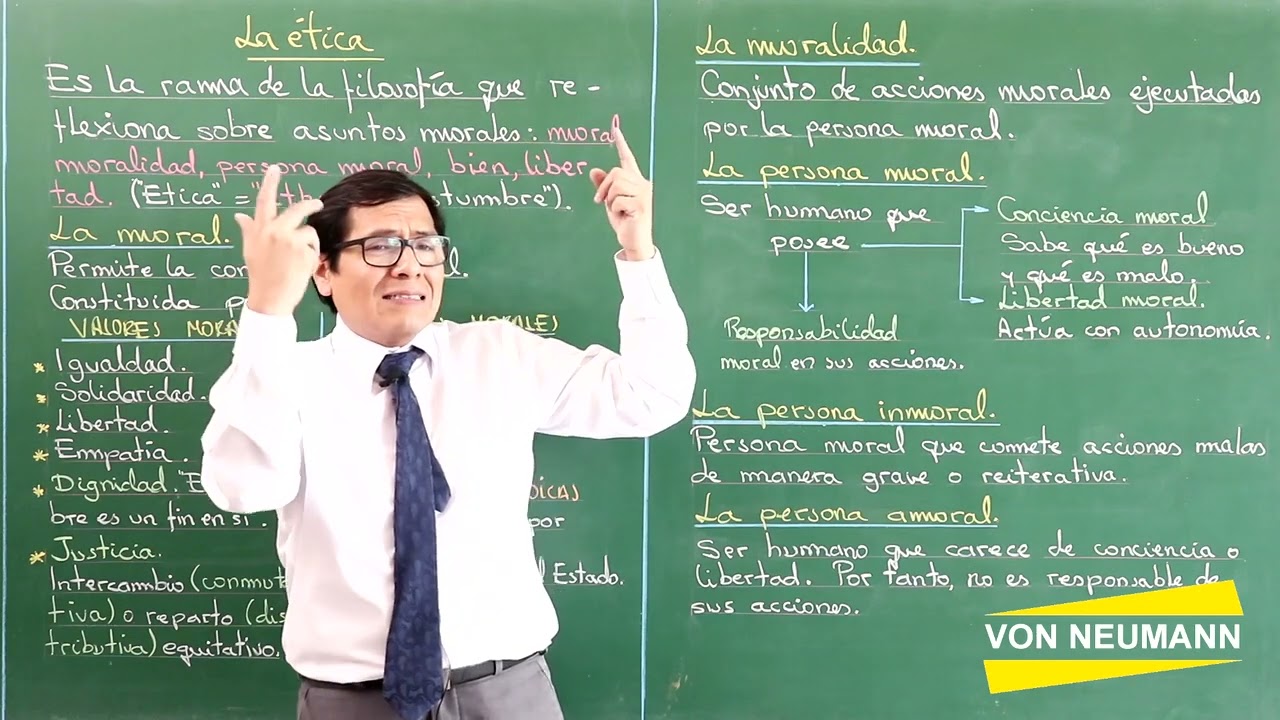 La ética
Es la rama de la filosofía que re-
flexiona sobre asuntos morales: moral
moralidad, persona moral, bien, liber-
tad. ("Etica" = "Eth stumbre").
La moral.
Permite la con l.
Constituida p
VALORES MORA MORALES
* Igualdad.
* Solidaridad.
* Libertad.
* Empatía.
* Dignidad. "E DICAS
bre es un fin en sí. por
* Justicia.
Intercambio (conmuta l Estado.
tiva) o reparto (dis
tributiva) equitativo.
La moralidad.
Conjunto de acciones morales ejecutadas
por la persona moral.
La persona moral.
Ser humano que
posee
Conciencia moral
Sabe qué es bueno
y qué es malo.
Libertad moral.
Actúa con autonomía.
Responsabilidad
moral en sus acciones.
La persona inmoral.
Persona moral que comete acciones malas
de manera grave o reiterativa.
La persona amoral.
Ser humano que carece de conciencia o
libertad. Por tanto, no es responsable de
sus acciones.
VON NEUMANN